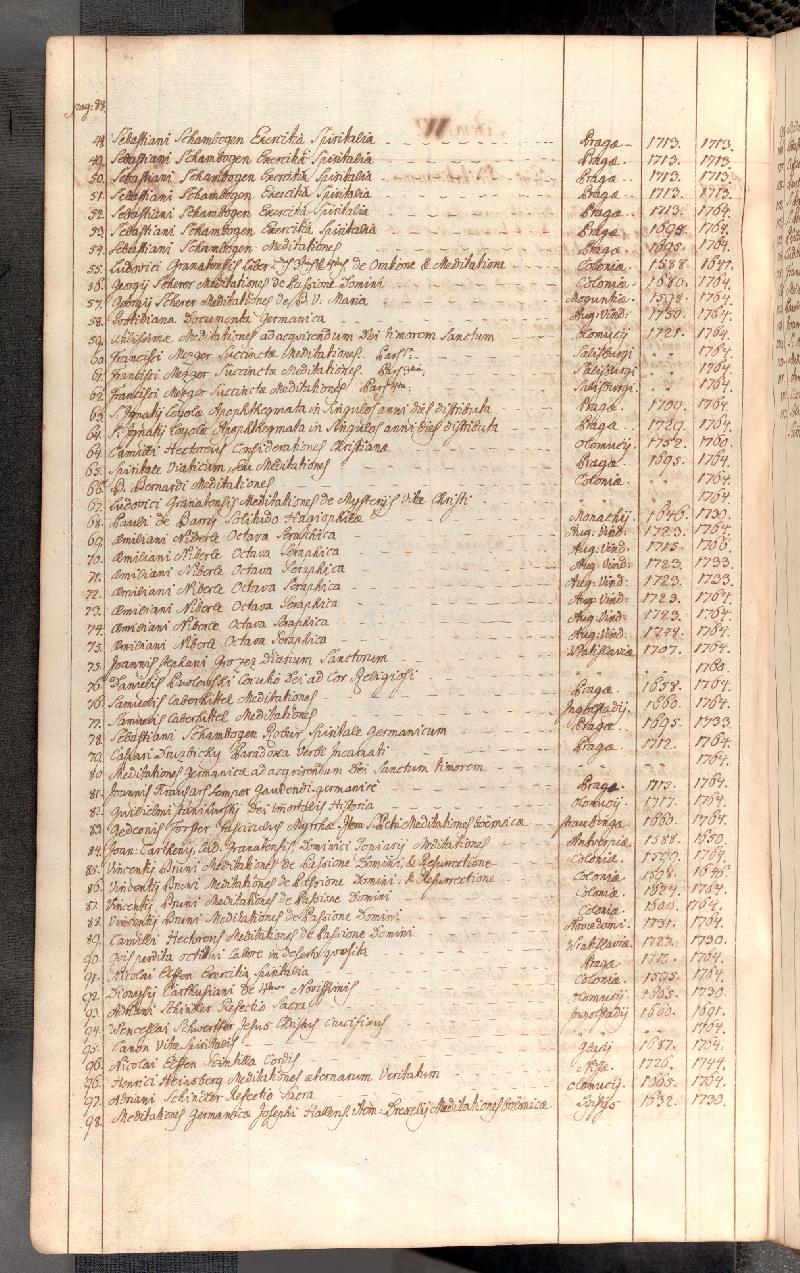 pag: 88.
48. Sebastiani Schambogen Exercitia Spiritalia Pragæ 1713. 1713.
49. Sebastiani Schambogen Exercitia Spiritalia Pragæ. 1713. 1713.
50. Sebastiani Schambogen Exercitia Spiritalia Pragæ 1713. 1713.
51. Sebastiani Schambogen Exercitia Spiritalia Pragæ 1713. 1713.
52. Sebastiani Schambogen Exercitia Spiritalia Pragæ 1713. 1764.
53. Sebastiani Schambogen Exercitia Spiritalia Pragæ 1695. 1764.
54. Sebastiani Schambogen Meditationes Pragæ. 1695. 1764.
55. Ludovici Granatensis Liber de Oratione & Meditatione Coloniæ. 1588. 1641.
56. Georgij Scherer Meditationes de Passione Domini Coloniæ 1680. 1764.
57. Georgij Scherer Meditationes de B. V. Maria Moguntiæ 1598. 1764.
58. Cottidiana Documenta Germanica Aug: Vind: 1750. 1764.
59. Utilissimæ Meditationes ad acquirendum Dei timorem Sanctum Olomucij 1721. 1764.
60. Francisci Mezger Succinctæ Meditationes. Pars 1ma: Salisburgi " " 1764.
61. Francisci Mezger Succinctæ Meditationes. Pars 3tia: Salisburgi " " 1764.
62. Francisci Mezger Succinctæ Meditationes Pars 4ta: Salisburgi. " " 1764.
63. S. Ignatij Loyolæ Apophthegmata in Singulos anni dies distributa Pragæ. 1709. 1764.
64. S. Ignatij Loyolæ Apophthegmata in Singulos anni dies distributa Pragæ 1729. 1764.
64. Camilli Hectoreis Considerationes Christianæ Olomucij. 1752. 1760.
65. Spiritale Viaticum seu Meditationes Pragæ 1695. 1764.
66. D. Bernardi Meditationes Coloniæ. " " 1764.
67. Ludovici Granatensis Meditationes de Mysterijs Vitæ Christi " " " " 1764.
68. Pauli de Barry Solitudo Hagiophilæ Monachij. 1646. 1730.
69. Æmiliani Niberle Octava Seraphica Aug: Vind: 1723. 1764.
70. Æmiliani Niberle Octava Seraphica Aug: Vind: 1715. 1766.
71. Æmiliani Niberle Octava Seraphica Aug: Vind: 1723. 1733.
72. Æmiliani Niberle Octava Seraphica Aug: Vind: 1723. 1733.
73. Æmiliani Niberle Octava Seraphica Aug: Vind: 1723. 1764.
74. Æmiliani Niberle Octava Seraphica Aug: Vind: 1723. 1764.
75. Æmiliani Niberle Octava Seraphica Aug: Vind: 1728. 1764.
75. Joannis Stephani Grosez Diarium Sanctorum Wratislaviæ 1707. 1764.
76. Danielis Pawlowski Locutio Dei ad Cor Religiosi " " 1760.
76. Samuelis Laberkittel Meditationes Pragæ. 1658. 1764.
77. Samuelis Laberkittel Meditationes Ingolstadij. 1660. 1764.
78. Sebastiani Schambogen Robur Spiritale Germanicum Pragæ. 1695. 1733.
79. Caspari Druzbicky Paradoxa Verbi Incarnati Pragæ 1712. 1764.
80. Meditationes Germanicæ ad acquirendum Dei Sanctum timorem " " 1764.
81. Joannis Kraus ars semper Gaudendi germanicè Pragæ. 1715. 1764.
82. Guilhelmi Stanihursti Dei immortalis Historia Olomucij. 1717. 1764.
83. Gedeonis Forster Fasciculus Myrrhæ Item S. Petri Meditationes boëmicæ Straubingæ. 1660. 1764.
84. Joan: Carthenij, Lud: Granatensis, Dominici Toniarij Meditationes Antverpiæ 1588. 1650.
85. Vincentij Bruni Meditationes de Passione Domini, & Resurrectione Coloniæ. 1599. 1764.
86. Vincentij Bruni Meditationes de Passione Domini & Resurrectione Coloniæ 1598. 1646.
87. Vincentij Bruni Meditationes de Passione Domini Coloniæ 1624. 1764.
88. Vincentij Bruni Meditationes de Passione Domini Coloniæ. 1600. 1764.
89. Camilli Hectoreis Meditationes de Passione Domini 1731. 1764.
90. Ovis perdita octidui labore in deserto quæsita Wratislaviæ. 1723. 1730.
91. Nicolai Elffen Exercitia Spiritalia Pragæ 1712. 1764.
92. Dionysij Carthusiani de 4tuor Novissimis Coloniæ 1595. 1764.
93. Adriani Schindler Refectio Sacra Olomucij 1665. 1730.
94. Wenceslai Schwertfer Jesus Christus Crucifixus Ingolstadij 1660. 1691.
95. Canon Vitæ Spiritalis " " 1764.
96. Nicolai Elffen Scintilla Cordis 1687. 1764.
96. Henrici Heinsberg Meditationes æternarum Veritatum Nissæ. 1726. 1744.
97. Adriani Schindler Refectio Sacra Olomucij. 1665. 1764.
98. Meditationes Germanicæ Josephi Hallensi Item: Drexelij Meditationes boëmicæ 1632. 1730.